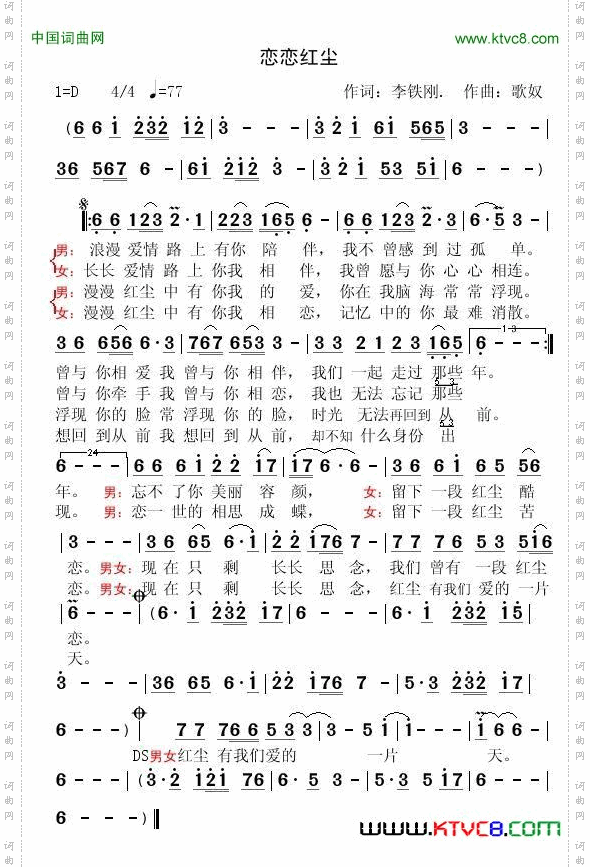 中国词曲网 www.ktvc8.com
恋恋红尘
1=D 4/4 ♩=77 作词：李铁刚. 作曲：歌奴
(6 6 1 232 12 | 3 - - - | 3 2 1 61 565 |
36 567 6 - | 61 212 3 - | 3 21 53 51 | 6 - - -)
‖: 6 6 123 2·1 | 223 165 6 - | 6 6 123 2·3 | 6·5 3 -|
男：浪漫 爱情 路 上 有你 陪 伴，我不 曾感 到 过 孤 单。
女：长长 爱情 路 上 你我 相 伴，我曾 愿与 你 心 心 相连。
男：漫漫 红尘 中 有你 我 的 爱，你在 我脑 海 常 常 浮现。
女：漫漫 红尘 中 有你 我 相 恋，记忆 中的 你 最 难 消散。
1·3
3 6 656 6·3 | 767 65 3 - | 33 2 1 2 3 165 | 6 - - :‖
曾与 你相 爱 我 曾 与 你 相 伴，我们 一 起 走 过 那些 年。
曾与 你牵 手 我 曾 与 你 相 恋，我也 无 法 忘 记 那些
浮现 你的 脸 常 浮现 你 的 脸，时光 无法 再回到 从 前。
想回 到从 前 我 想回 到 从 前，却不知 什么 身份 出
24
6 - - - | 66 61 2 2 17 | 176·6 - | 36 61 65 56
年。 男：忘不 了你 美丽 容 颜， 女：留下 一段 红尘 酷
现。 男：恋一 世的 相思 成 蝶， 女：留下 一段 红尘 苦
| 3 - - - | 36 65 6·1 | 2 2 176 6 - | 3 6 65 3 5 516 |
恋。男女：现在 只 剩 长长 思 念，我们 曾有 一 段 红尘
恋。男女：现在 只 剩 长长 思 念，红尘 有我们 爱的 一片
|6 - - - |(6· 1 232 17 | 6 - - - | 6· 1 232 15 |
恋。
天。
3 - - - | 36 65 6·1 | 2 2 176 6 - | 5·3 232 17 |
6 - - -) | 77 766 533 | 3 - 51 | 1 - - - | 1 66 - |
DS男女红尘 有我们 爱的 一片 天。
6 - - - |(3·2 121 76 | 6 - - - | 6· 1 232 17 |
6 - - -)‖
www.KTVC8.com
词曲网